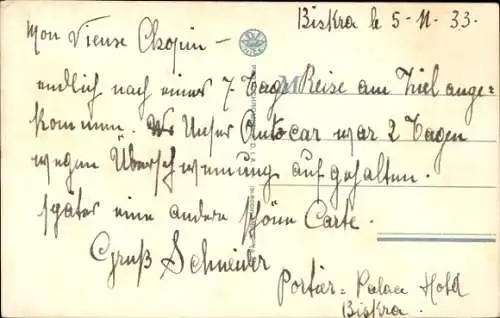 Biskra le 5-11.33.
Mon Vieux Chopin -
endlich nach einer 7-Tags Reise am Ziel ange=
kommen. Unser Autocar war 2 Tagen
wegen Überschwemmung aufgehalten.
später eine andere schöne Carte.
Gruß Schneider
Portier = Palace Hotel
Biskra.